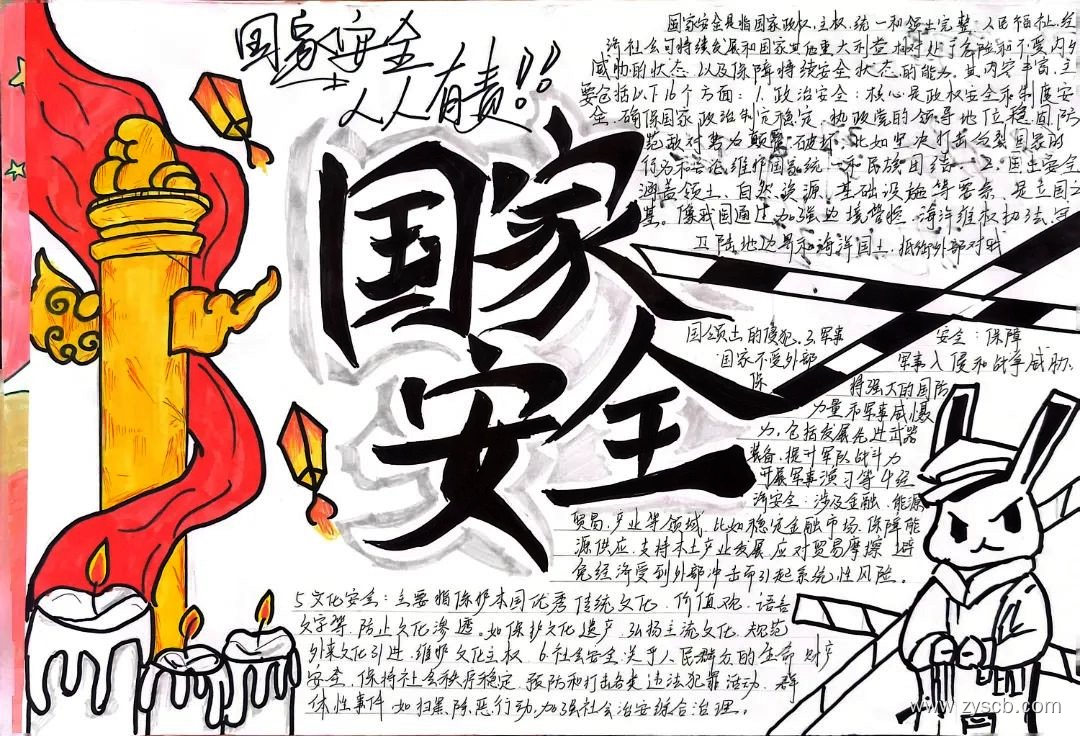 国家安全
人人有责!!
国家
安全
国家安全是指国家政权、主权、统一和领土完整、人民福祉、经
济社会可持续发展和国家其他重大利益相对处于危险和不受内外
威胁的状态,以及保障持续安全状态的能力。其内容丰富,主
要包括以下16个方面:1.政治安全:核心是政权安全和制度安
全,确保国家政治制度稳定,执政党的领导地位稳固,防
范敌对势力颠覆破坏。比如坚决打击分裂国家的
行为和言论,维护国家统一和民族团结。2.国土安全
涵盖领土、自然资源、基础设施等要素,是立国之
基。像我国通过加强边境管控、海洋维权执法,守
卫陆地边界和海洋国土,抵御外部对我
国领土的侵犯。3.军事安全:保障
国家不受外部军事入侵和战争威胁、
保持强大的国防
力量和军事威慑
力,包括发展先进武器
装备、提升军队战斗力
开展军事演习等4.经
济安全:涉及金融、能源
贸易、产业等领域,比如稳定金融市场、保障能
源供应、支持本土产业发展,应对贸易摩擦,避
免经济受到外部冲击而引起系统性风险。
5.文化安全:主要指保护本国优秀传统文化、价值观、语言
文字等,防止文化渗透。如保护文化遗产,弘扬主流文化,规范
外来文化引进,维护文化主权 6.社会安全:关于人民群众的生命财产
安全,保持社会秩序稳定,预防和打击各类违法犯罪活动、群
体性事件,如扫黑除恶行动,加强社会治安综合治理。
www.zyscb.com